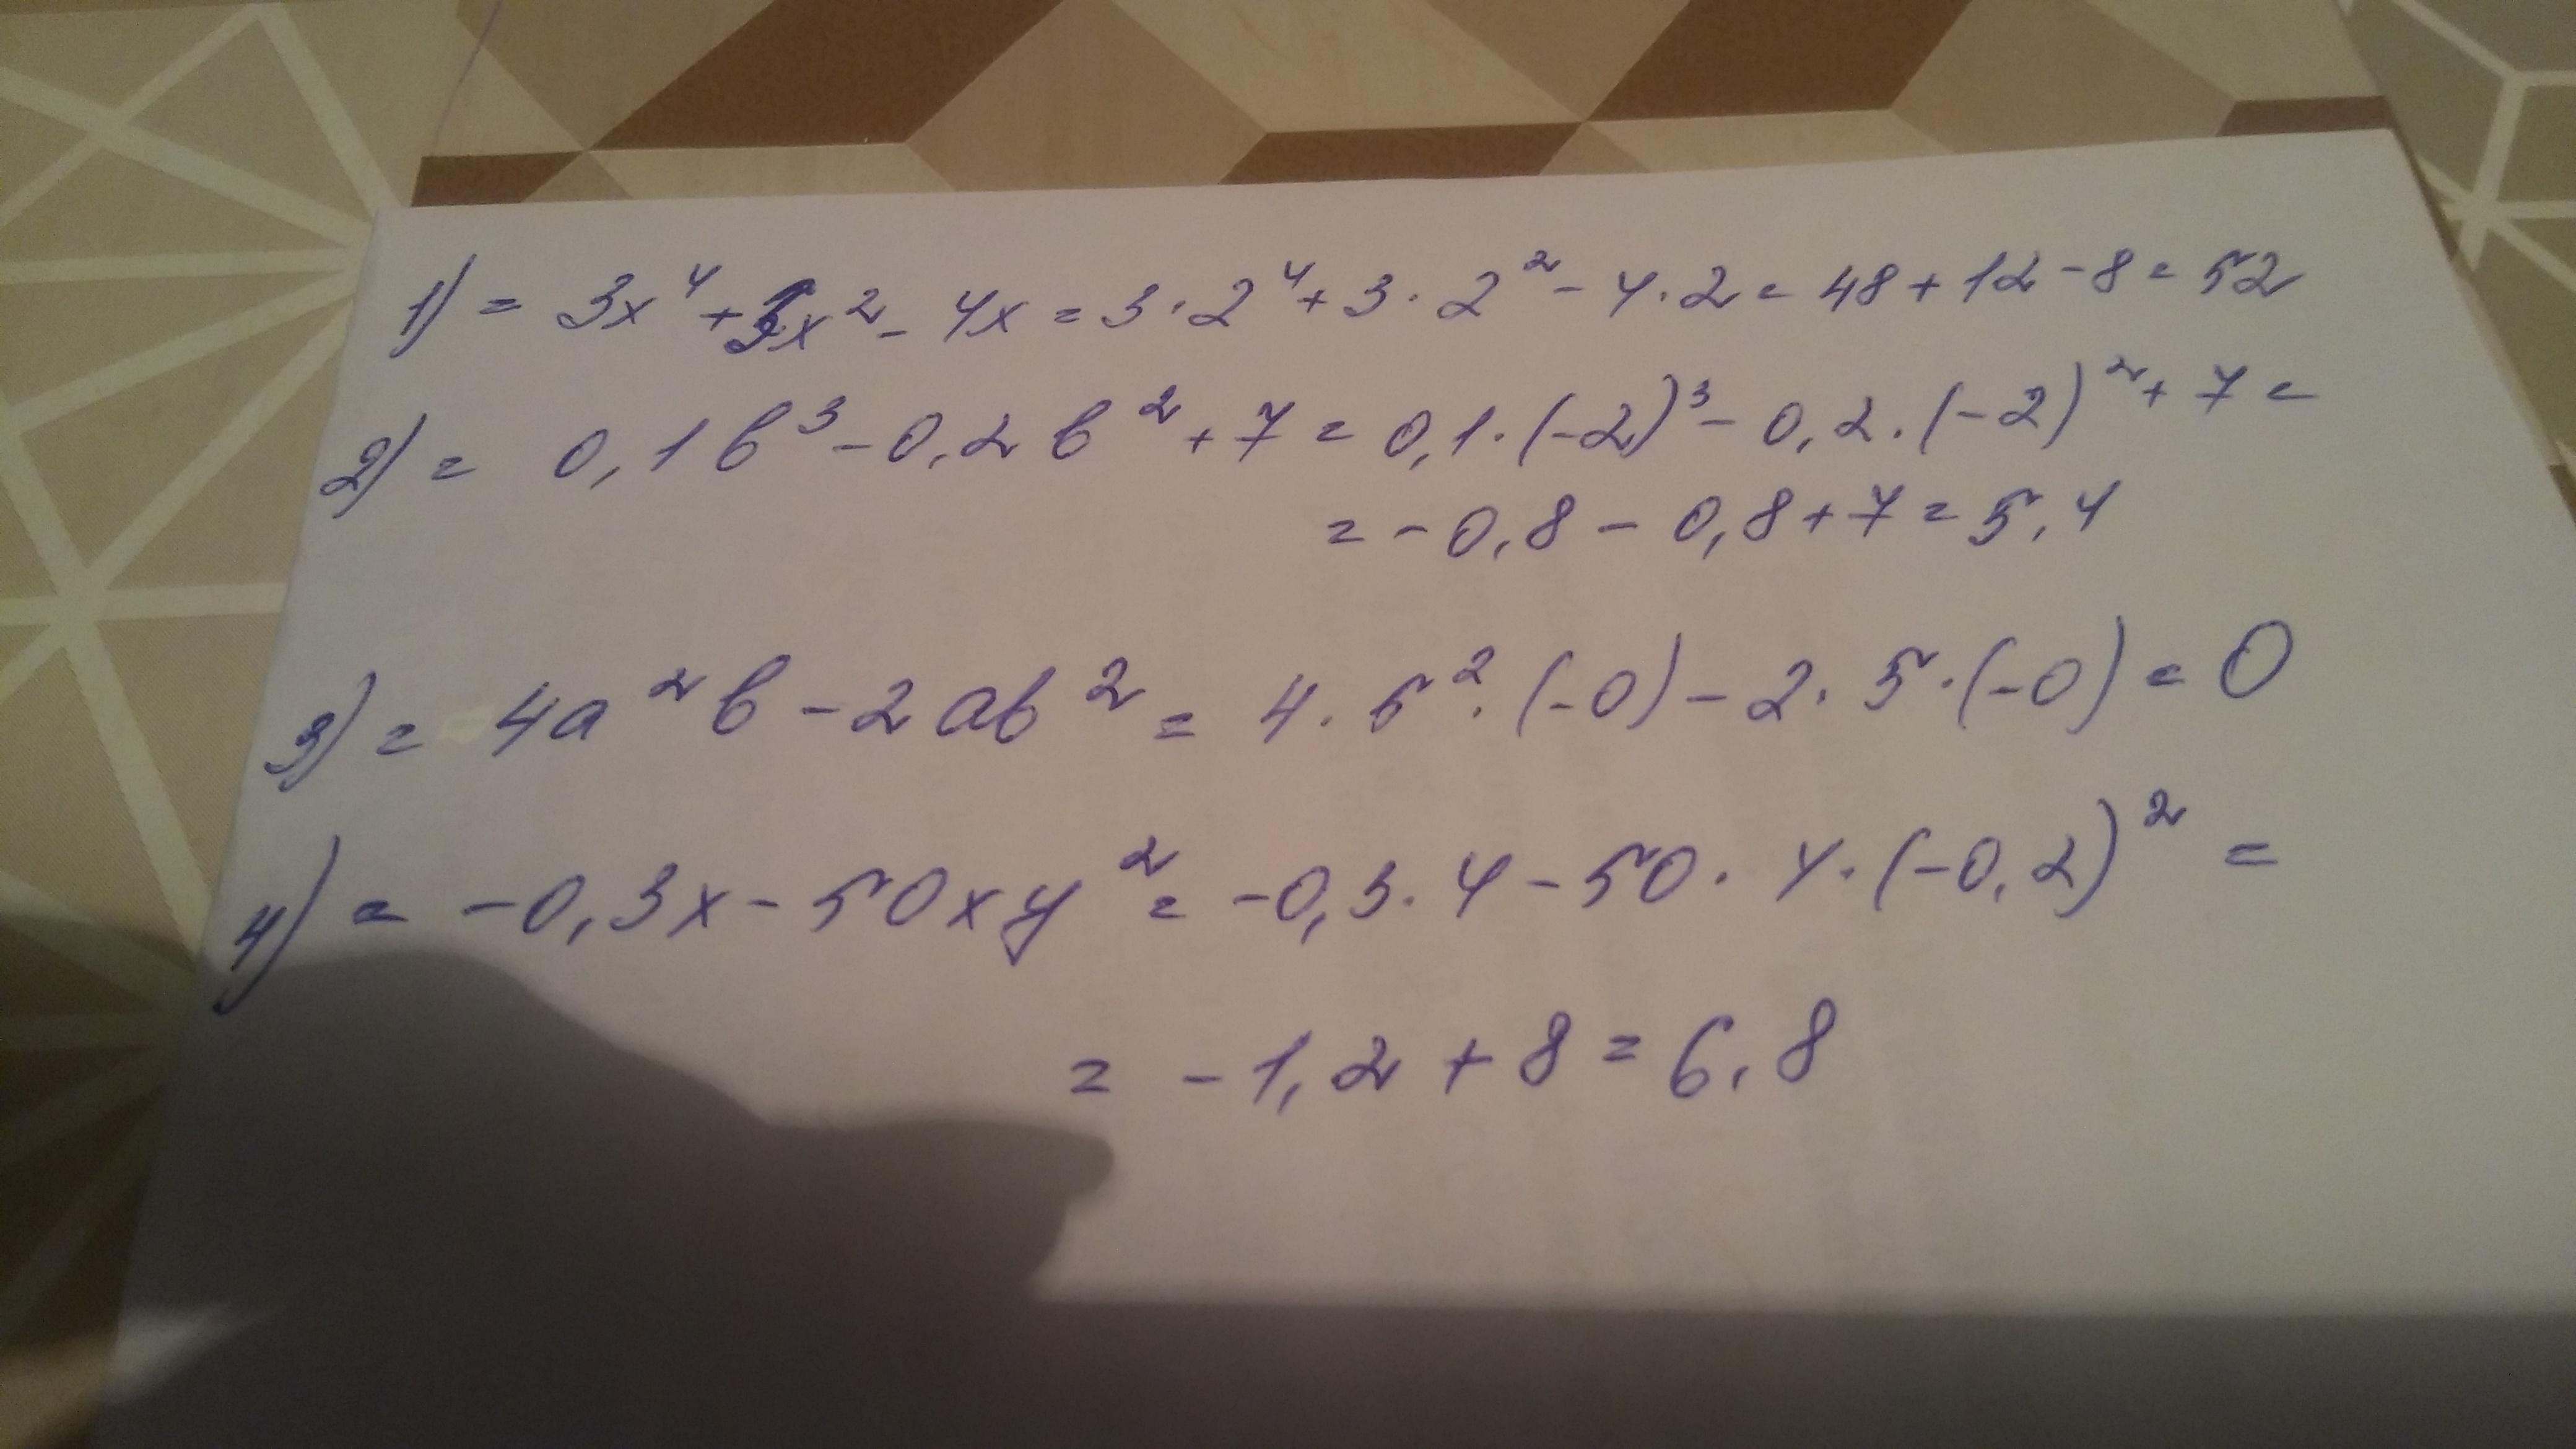 1) = 3x⁴ + 3x² - 4x = 3 · 2⁴ + 3 · 2² - 4 · 2 = 48 + 12 - 8 = 52
2) = 0,1b³ - 0,2b² + 7 = 0,1 · (-2)³ - 0,2 · (-2)² + 7 =
= -0,8 - 0,8 + 7 = 5,4
3) = 4a²b - 2ab² = 4 · 5² · (-0) - 2 · 5 · (-0) = 0
4) = -0,3x - 50xy² = -0,3 · 4 - 50 · 4 · (-0,2)² =
= -1,2 + 8 = 6,8